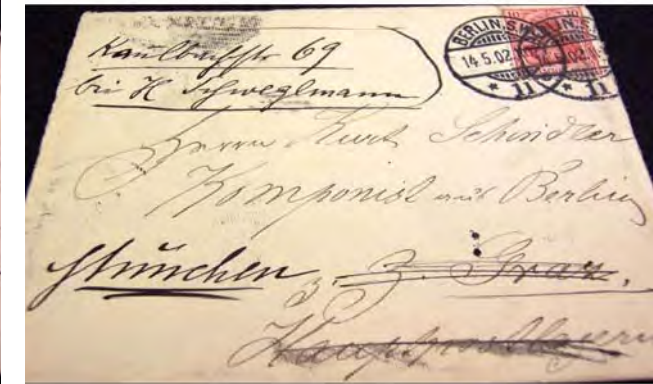 Kaulbachstr 69
bei H Schweglmann
BERLIN.S.W. BERLIN.S.W.
14.5.02 14.5.02
* 11 * 11
10 10
Herrn Kurt Schindler
Komponist aus Berlin
München. z. Z. Graz.
Hauptpostlagernd